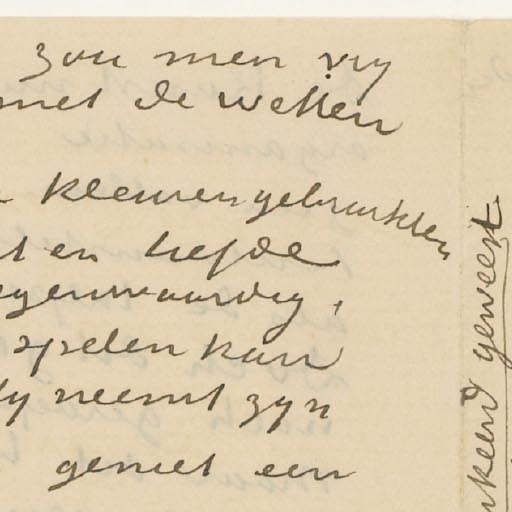 zou men vry
met de wetten
kleuren gebruikten
t en liefde
egenwaardig,
spelen kan
y neemt zyn
geniet een
nkeerd geweest